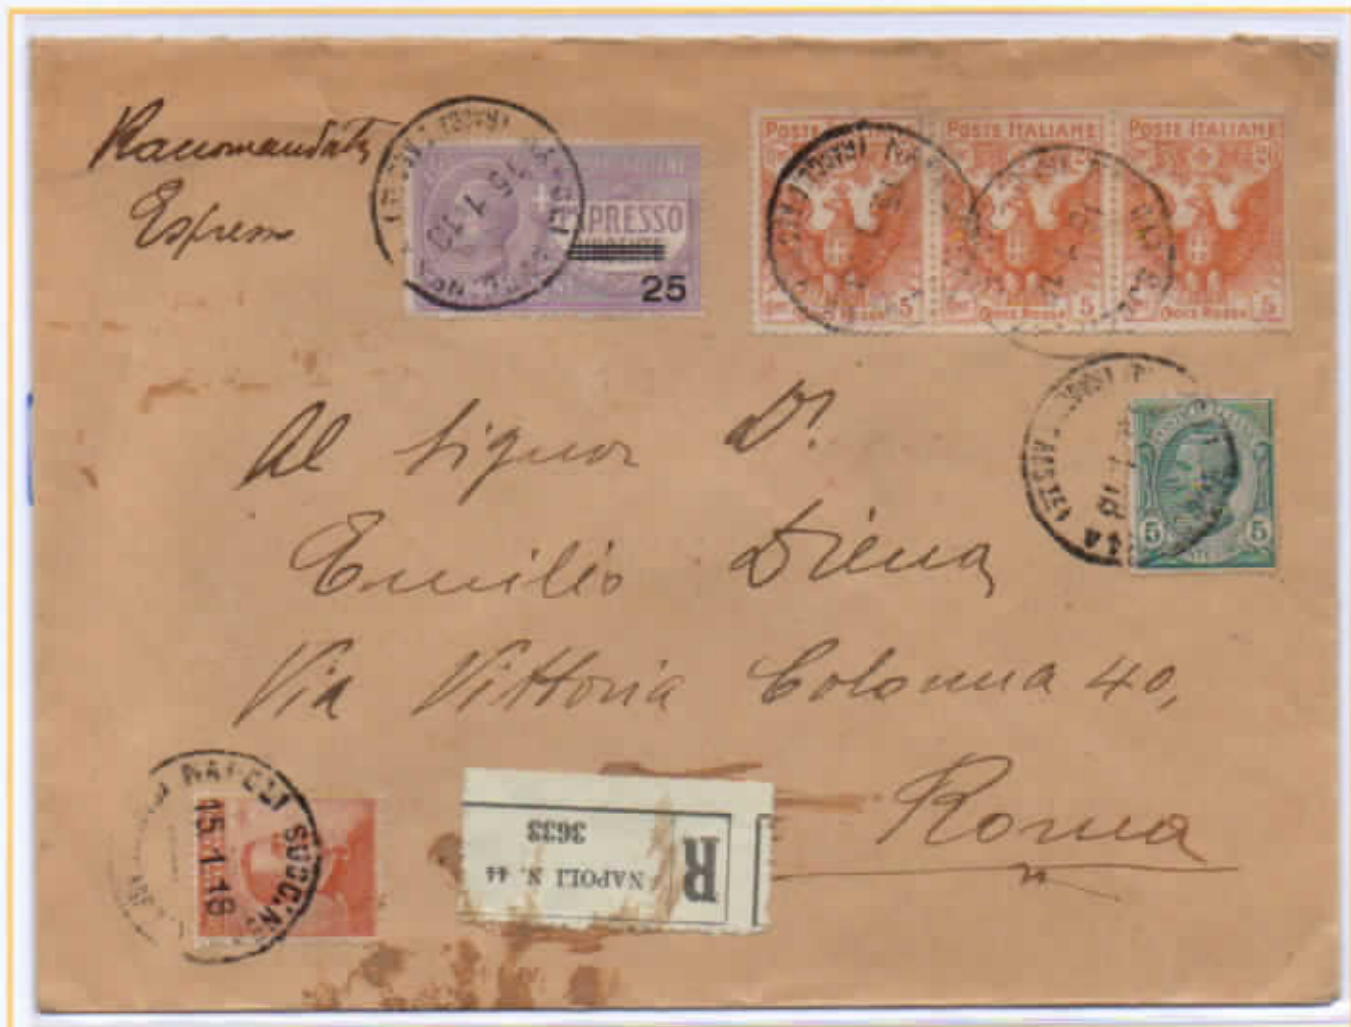 Raccomandata
Espresso
ESPRESSO
25
POSTE ITALIANE
POSTE ITALIANE
POSTE ITALIANE
20
5
CROCE ROSSA
5
CROCE ROSSA
5
CROCE ROSSA
Al Signor Dr.
Emilio Diena
5 5
Via Vittoria Colonna 40,
Roma
NAPOLI SUCC.
15.1.18
R
NAPOLI N. 44
3633